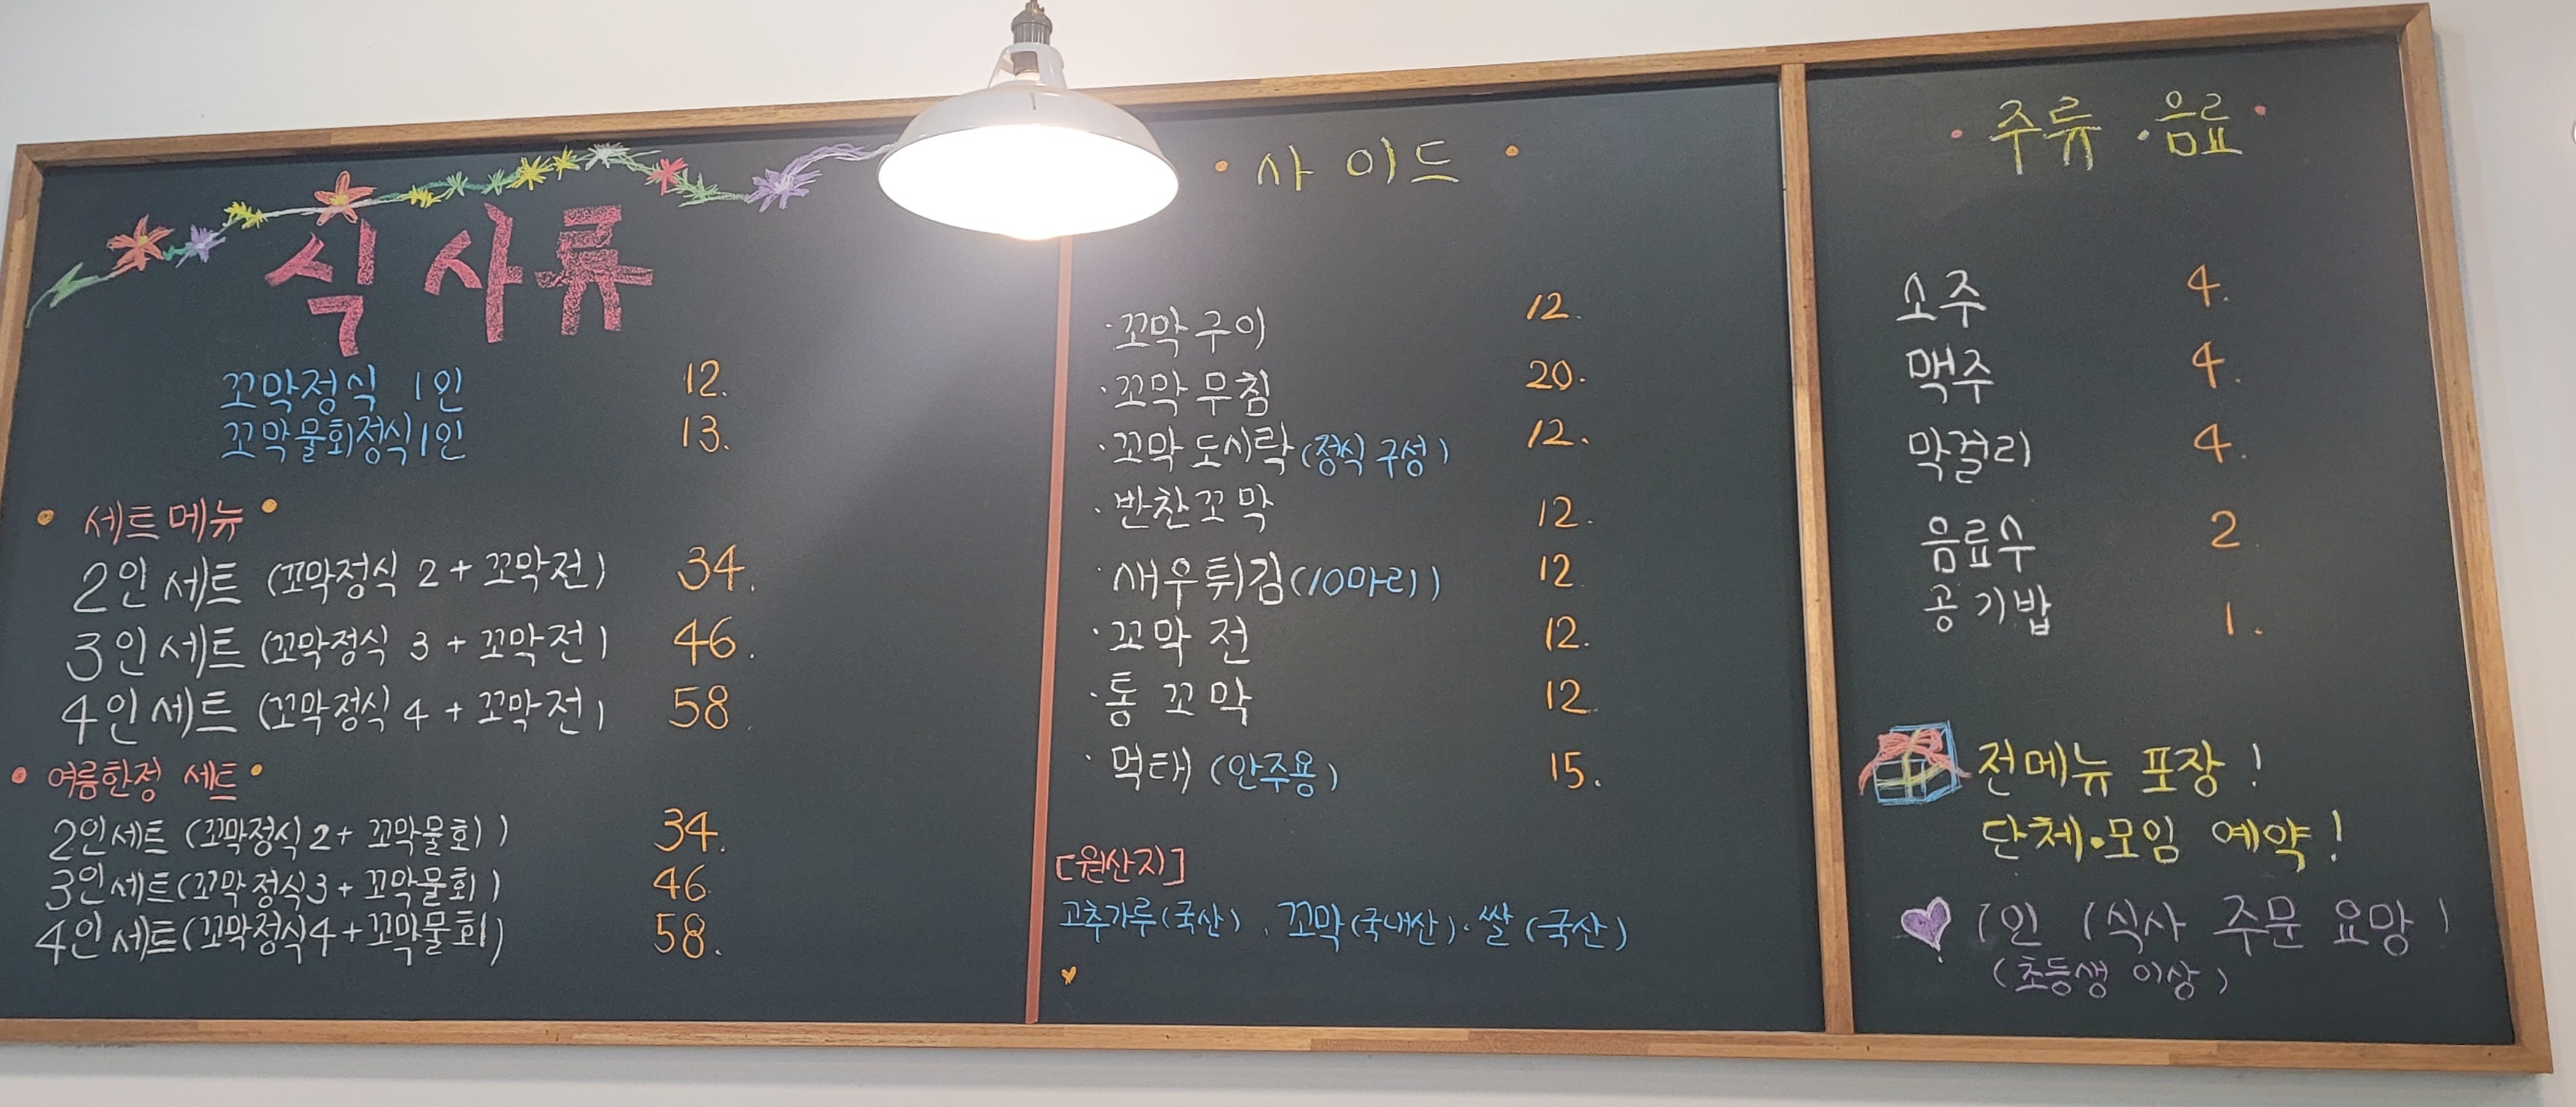 식사류
꼬막정식 1인 12.
꼬막물회정식1인 13.
세트메뉴
2인 세트 (꼬막정식 2 + 꼬막전) 34.
3인 세트 (꼬막정식 3 + 꼬막전) 46.
4인 세트 (꼬막정식 4 + 꼬막전) 58
여름한정 세트
2인세트 (꼬막정식2+ 꼬막물회) 34.
3인세트(꼬막정식3+ 꼬막물회) 46.
4인세트(꼬막정식4+꼬막물회) 58.
· 사이드 ·
· 꼬막구이 12.
· 꼬막무침 20.
· 꼬막도시락(정식구성) 12.
· 반찬꼬막 12.
· 새우튀김(10마리) 12.
· 꼬막전 12.
· 통꼬막 12.
· 먹태 (안주용) 15.
[원산지]
고추가루(국산), 꼬막(국내산)·쌀(국산)
· 주류 · 음료 ·
소주 4.
맥주 4.
막걸리 4.
음료수 2
공기밥 1.
전메뉴 포장!
단체·모임 예약!
1인 1식사 주문 요망
(초등생 이상)